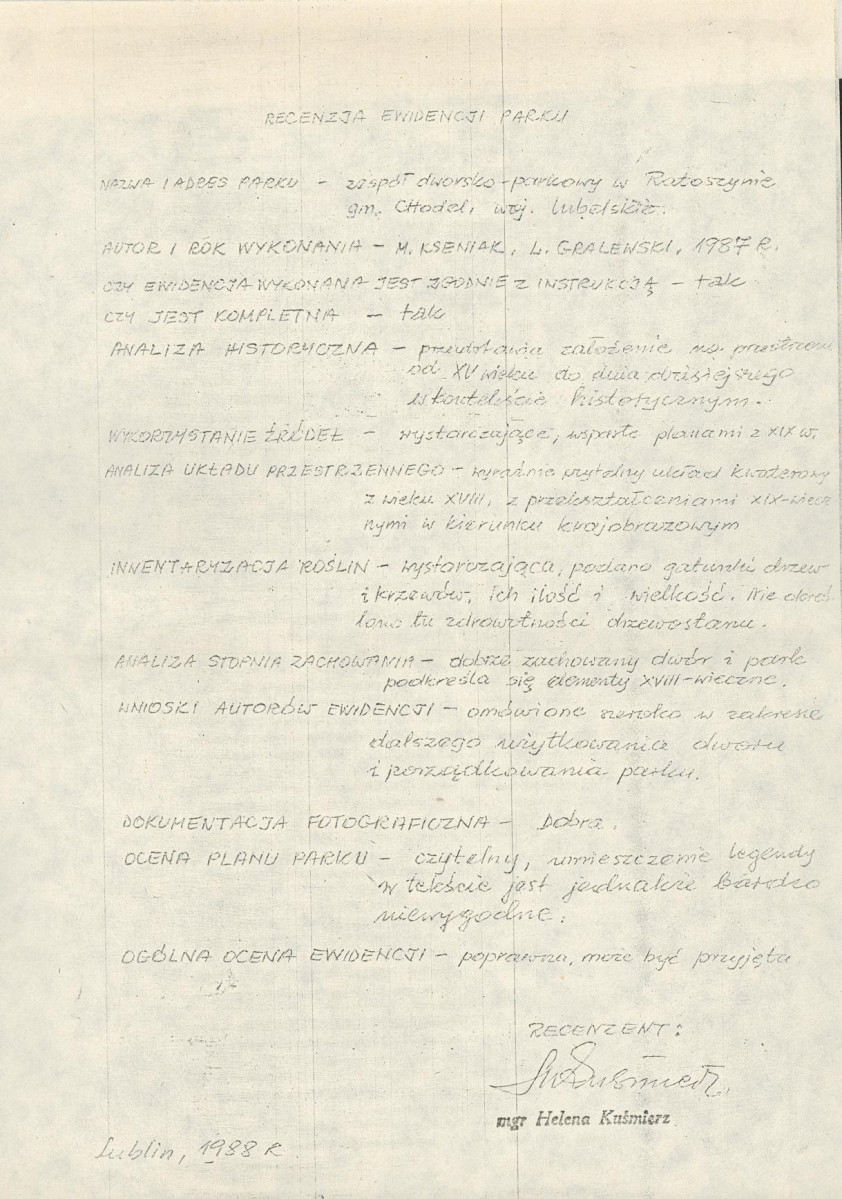 RECENZJA EWIDENCJI PARKU
NAZWA I ADRES PARKU – zespół dworsko-parkowy w Ratoszynie
gm. Chodel, woj. lubelskie.
AUTOR I ROK WYKONANIA – M. KSENIAK, L. GRALEWSKI, 1987 R.
CZY EWIDENCJA WYKONANA JEST ZGODNIE Z INSTRUKCJĄ – tak
CZY JEST KOMPLETNA – tak
ANALIZA HISTORYCZNA – przedstawia założenie na przestrzeni
od XV wieku do dnia dzisiejszego
w kontekście historycznym.
WYKORZYSTANIE ŹRÓDEŁ – wystarczające, wsparte planami z XIX w.
ANALIZA UKŁADU PRZESTRZENNEGO – wyraźnie czytelny układ kwaterowy
z wieku XVIII, z przekształceniami XIX-wiecz
nymi w kierunku krajobrazowym
INWENTARYZACJA ROŚLIN – wystarczająca, podano gatunki drzew
i krzewów, ich ilość i wielkość. Nie okreś-
lono tu zdrowotności drzewostanu.
ANALIZA STOPNIA ZACHOWANIA – dobrze zachowany dwór i park
podkreśla się elementy XVIII-wieczne.
WNIOSKI AUTORÓW EWIDENCJI – omówione szeroko w zakresie
dalszego użytkowania dworu
i porządkowania parku.
DOKUMENTACJA FOTOGRAFICZNA – Dobra.
OCENA PLANU PARKU – czytelny, umieszczenie legendy
w tekście jest jednakże bardzo
niewygodne.
OGÓLNA OCENA EWIDENCJI – poprawna, może być przyjęta
RECENZENT:
HKuśmierz
mgr Helena Kuśmierz
Lublin, 1988 r.